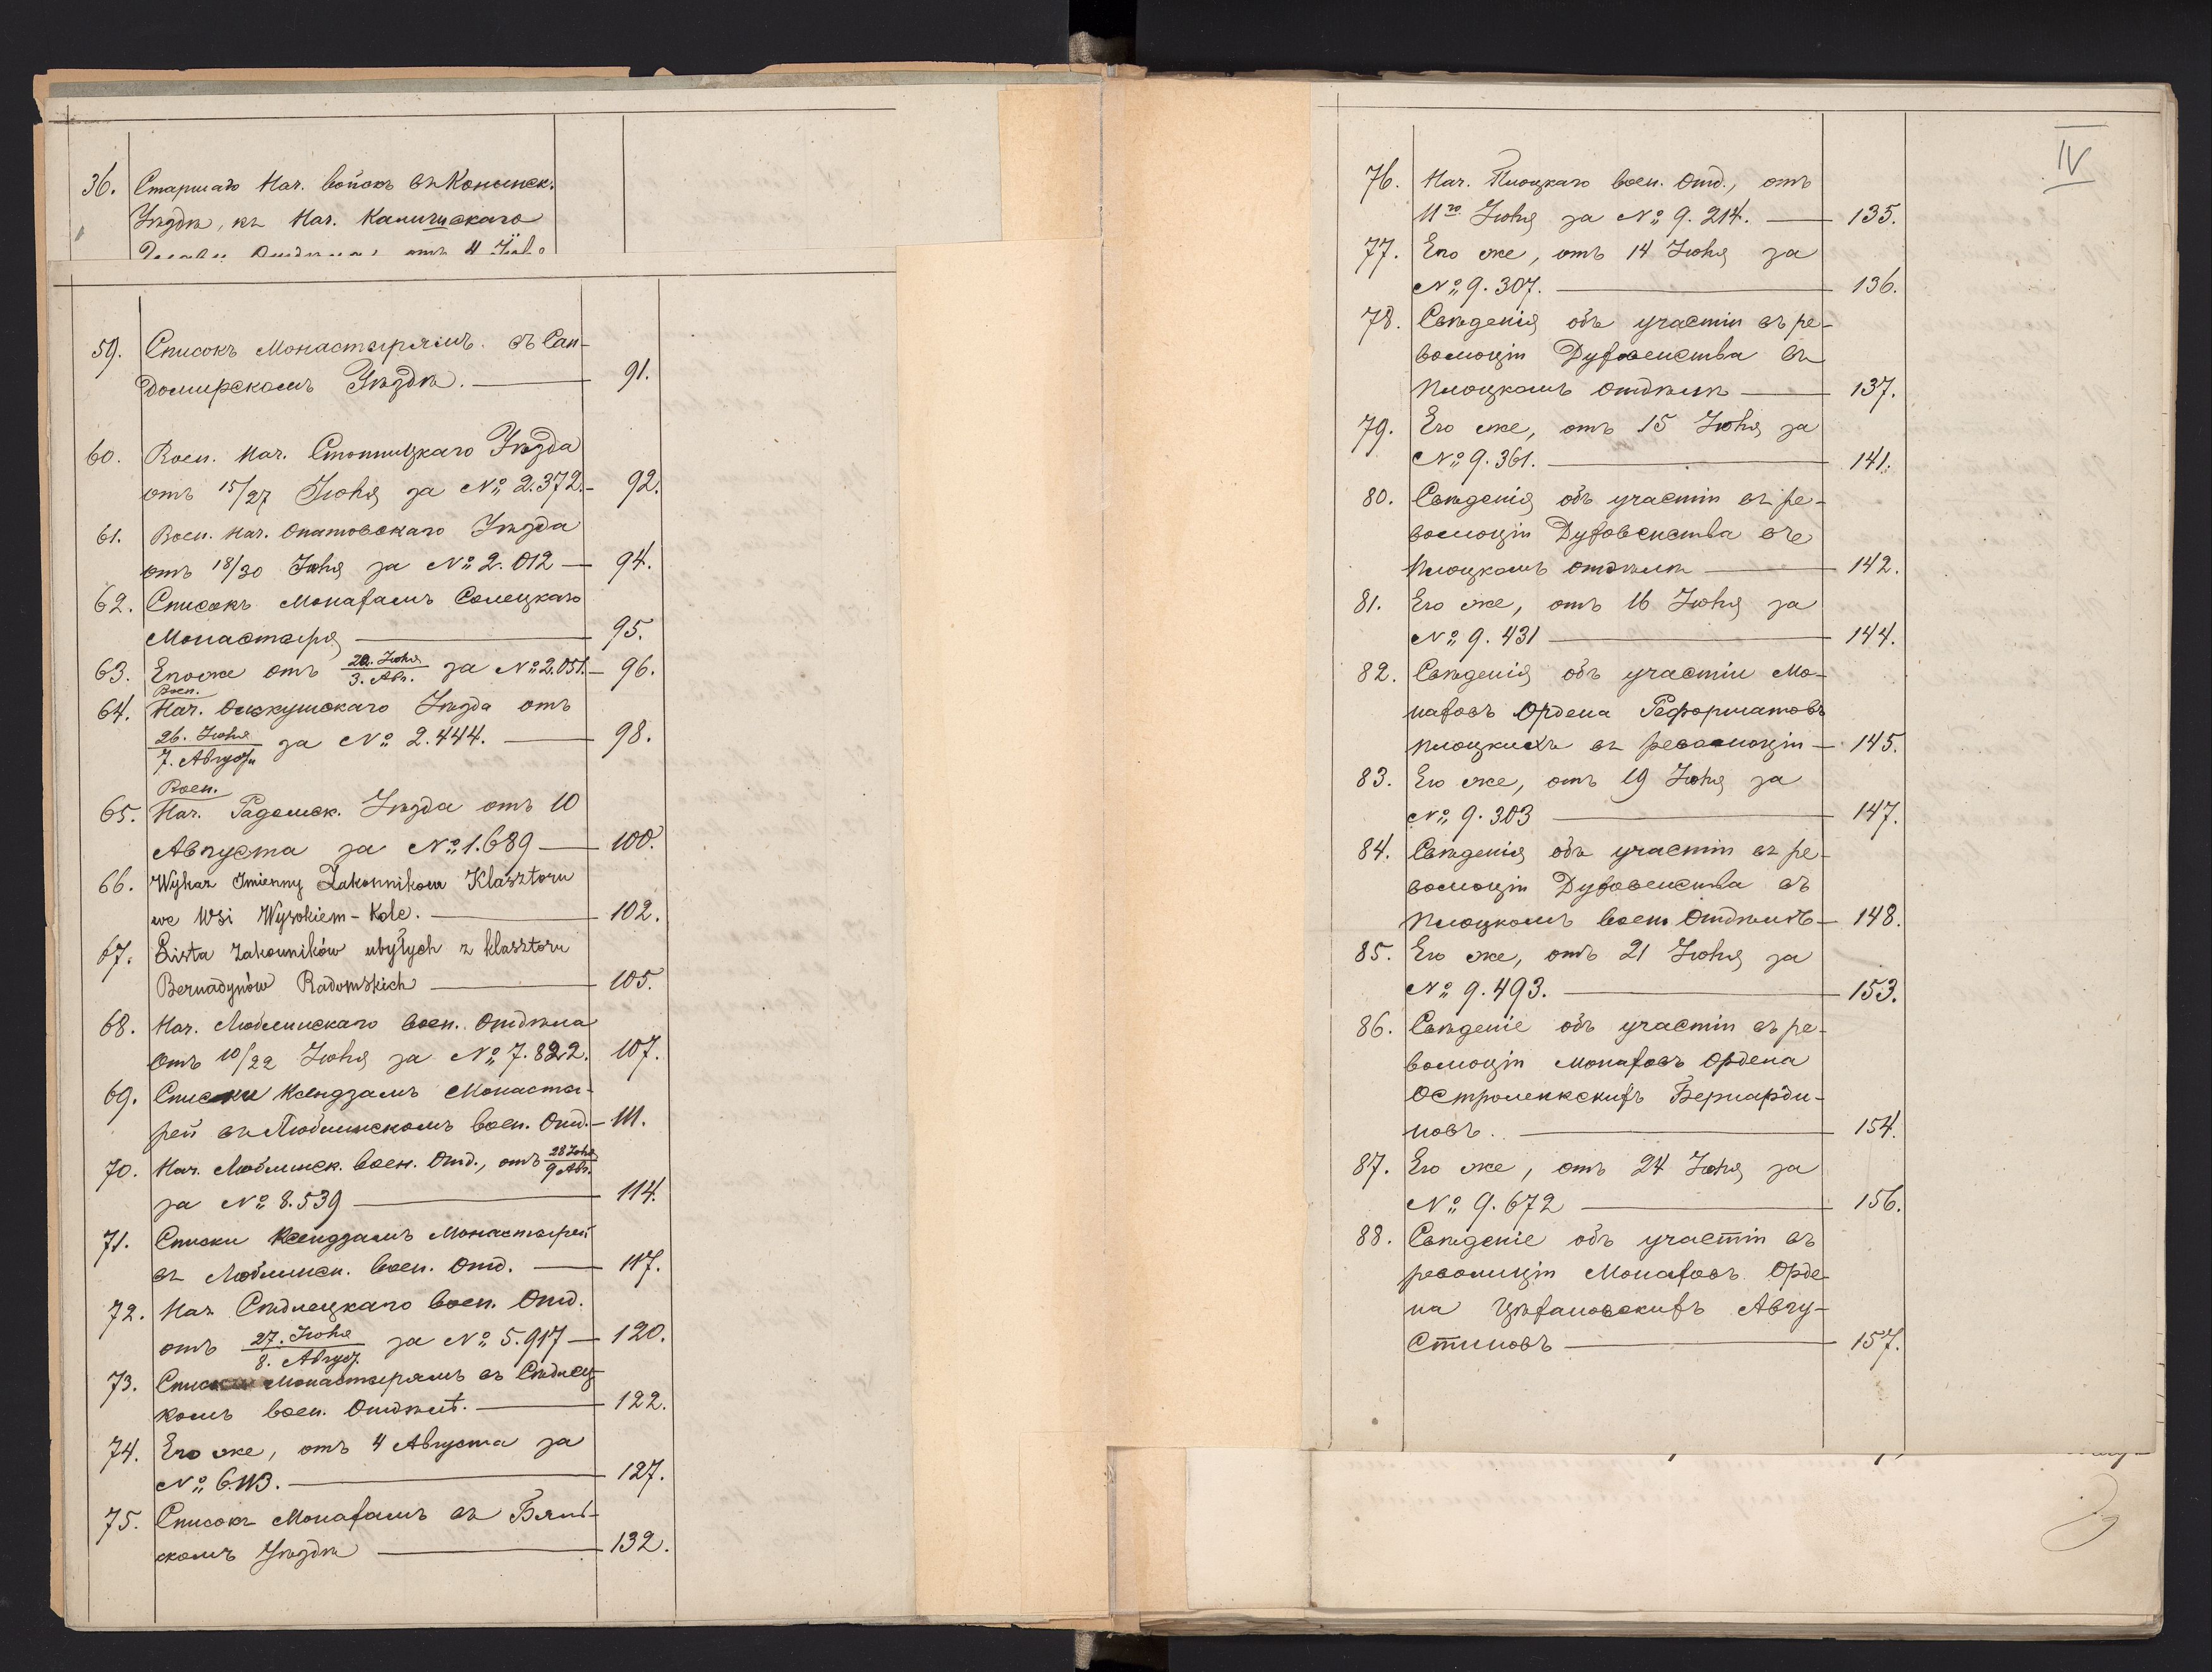 36. Старшаго Нач. войскъ въ Конинск.
Уѣздѣ, къ Нач. Калишскаго
59. Списокъ Монастырямъ въ Сан-
домирскомъ Уѣздѣ. — 91.
60. Воен. Нач. Стопницкаго Уѣзда
отъ 15/27 Іюля за № 2.372. — 92.
61. Воен. Нач. Опатовскаго Уѣзда
отъ 18/30 Іюля за № 2.012 — 94.
62. Списокъ Монахамъ Солецкаго
Монастыря — 95.
63. Его же отъ 22. Іюля / 3. Авг. за № 2.051. — 96.
Воен.
64. Нач. Олькушскаго Уѣзда отъ
26. Іюля / 7. Августа за № 2.444. — 98.
Воен.
65. Нач. Радомск. Уѣзда отъ 10
Августа за № 1.689 — 100.
66. Wykaz Imienny Zakonnikow Klasztoru
we Wsi Wysokiem-Kole. — 102.
67. Lista zakonników ubyłych z klasztoru
Bernadynów Radomskich — 105.
68. Нач. Люблинскаго воен. Отдѣла
отъ 10/22 Іюля за № 7.822. 107.
69. Списки Ксендзамъ Монасты-
рей въ Люблинскомъ воен. Отд. — 111.
70. Нач. Люблинск. воен. Отд., отъ 28 Іюля / 9 Авг.
за № 8.539 — 114.
71. Списки Ксендзамъ Монастырей
въ Люблинск. воен. Отд. — 117.
72. Нач. Сѣдлецкаго воен. Отд.
отъ 27. Іюля / 8. Август. за № 5.917 — 120.
73. Списки Монастырямъ въ Сѣдлец-
комъ воен. Отдѣлѣ. — 122.
74. Его же, отъ 4 Августа за
№ 6.113. — 127.
75. Списокъ Монахамъ въ Бяль-
скомъ Уѣздѣ — 132.
IV
76. Нач. Плоцкаго воен. Отд., отъ
11го Іюля за № 9.214. — 135.
77. Его же, отъ 14 Іюля за
№ 9.307. — 136.
78. Свѣденія объ участіи въ ре-
волюціи Духовенства въ
Плоцкомъ отдѣлѣ — 137.
79. Его же, отъ 15 Іюля за
№ 9.361. — 141.
80. Свѣденія объ участіи въ ре-
волюціи Духовенства въ
Плоцкомъ отдѣлѣ — 142.
81. Его же, отъ 16 Іюля за
№ 9.431 — 144.
82. Свѣденія объ участіи Мо-
наховъ Ордена Реформатовъ
Плоцкихъ въ революціи — 145.
83. Его же, отъ 19 Іюля за
№ 9.303 — 147.
84. Свѣденія объ участіи въ ре-
волюціи Духовенства въ
Плоцкомъ воен. Отдѣлѣ — 148.
85. Его же, отъ 21 Іюля за
№ 9.493. — 153.
86. Свѣденіе объ участіи въ ре-
волюціи Монаховъ Ордена
Остроленкскихъ Бернарди-
новъ. — 154.
87. Его же, отъ 24 Іюля за
№ 9.672 — 156.
88. Свѣденіе объ участіи въ
революціи Монаховъ Орде-
на Цѣхановскихъ Авгу-
стиновъ — 157.